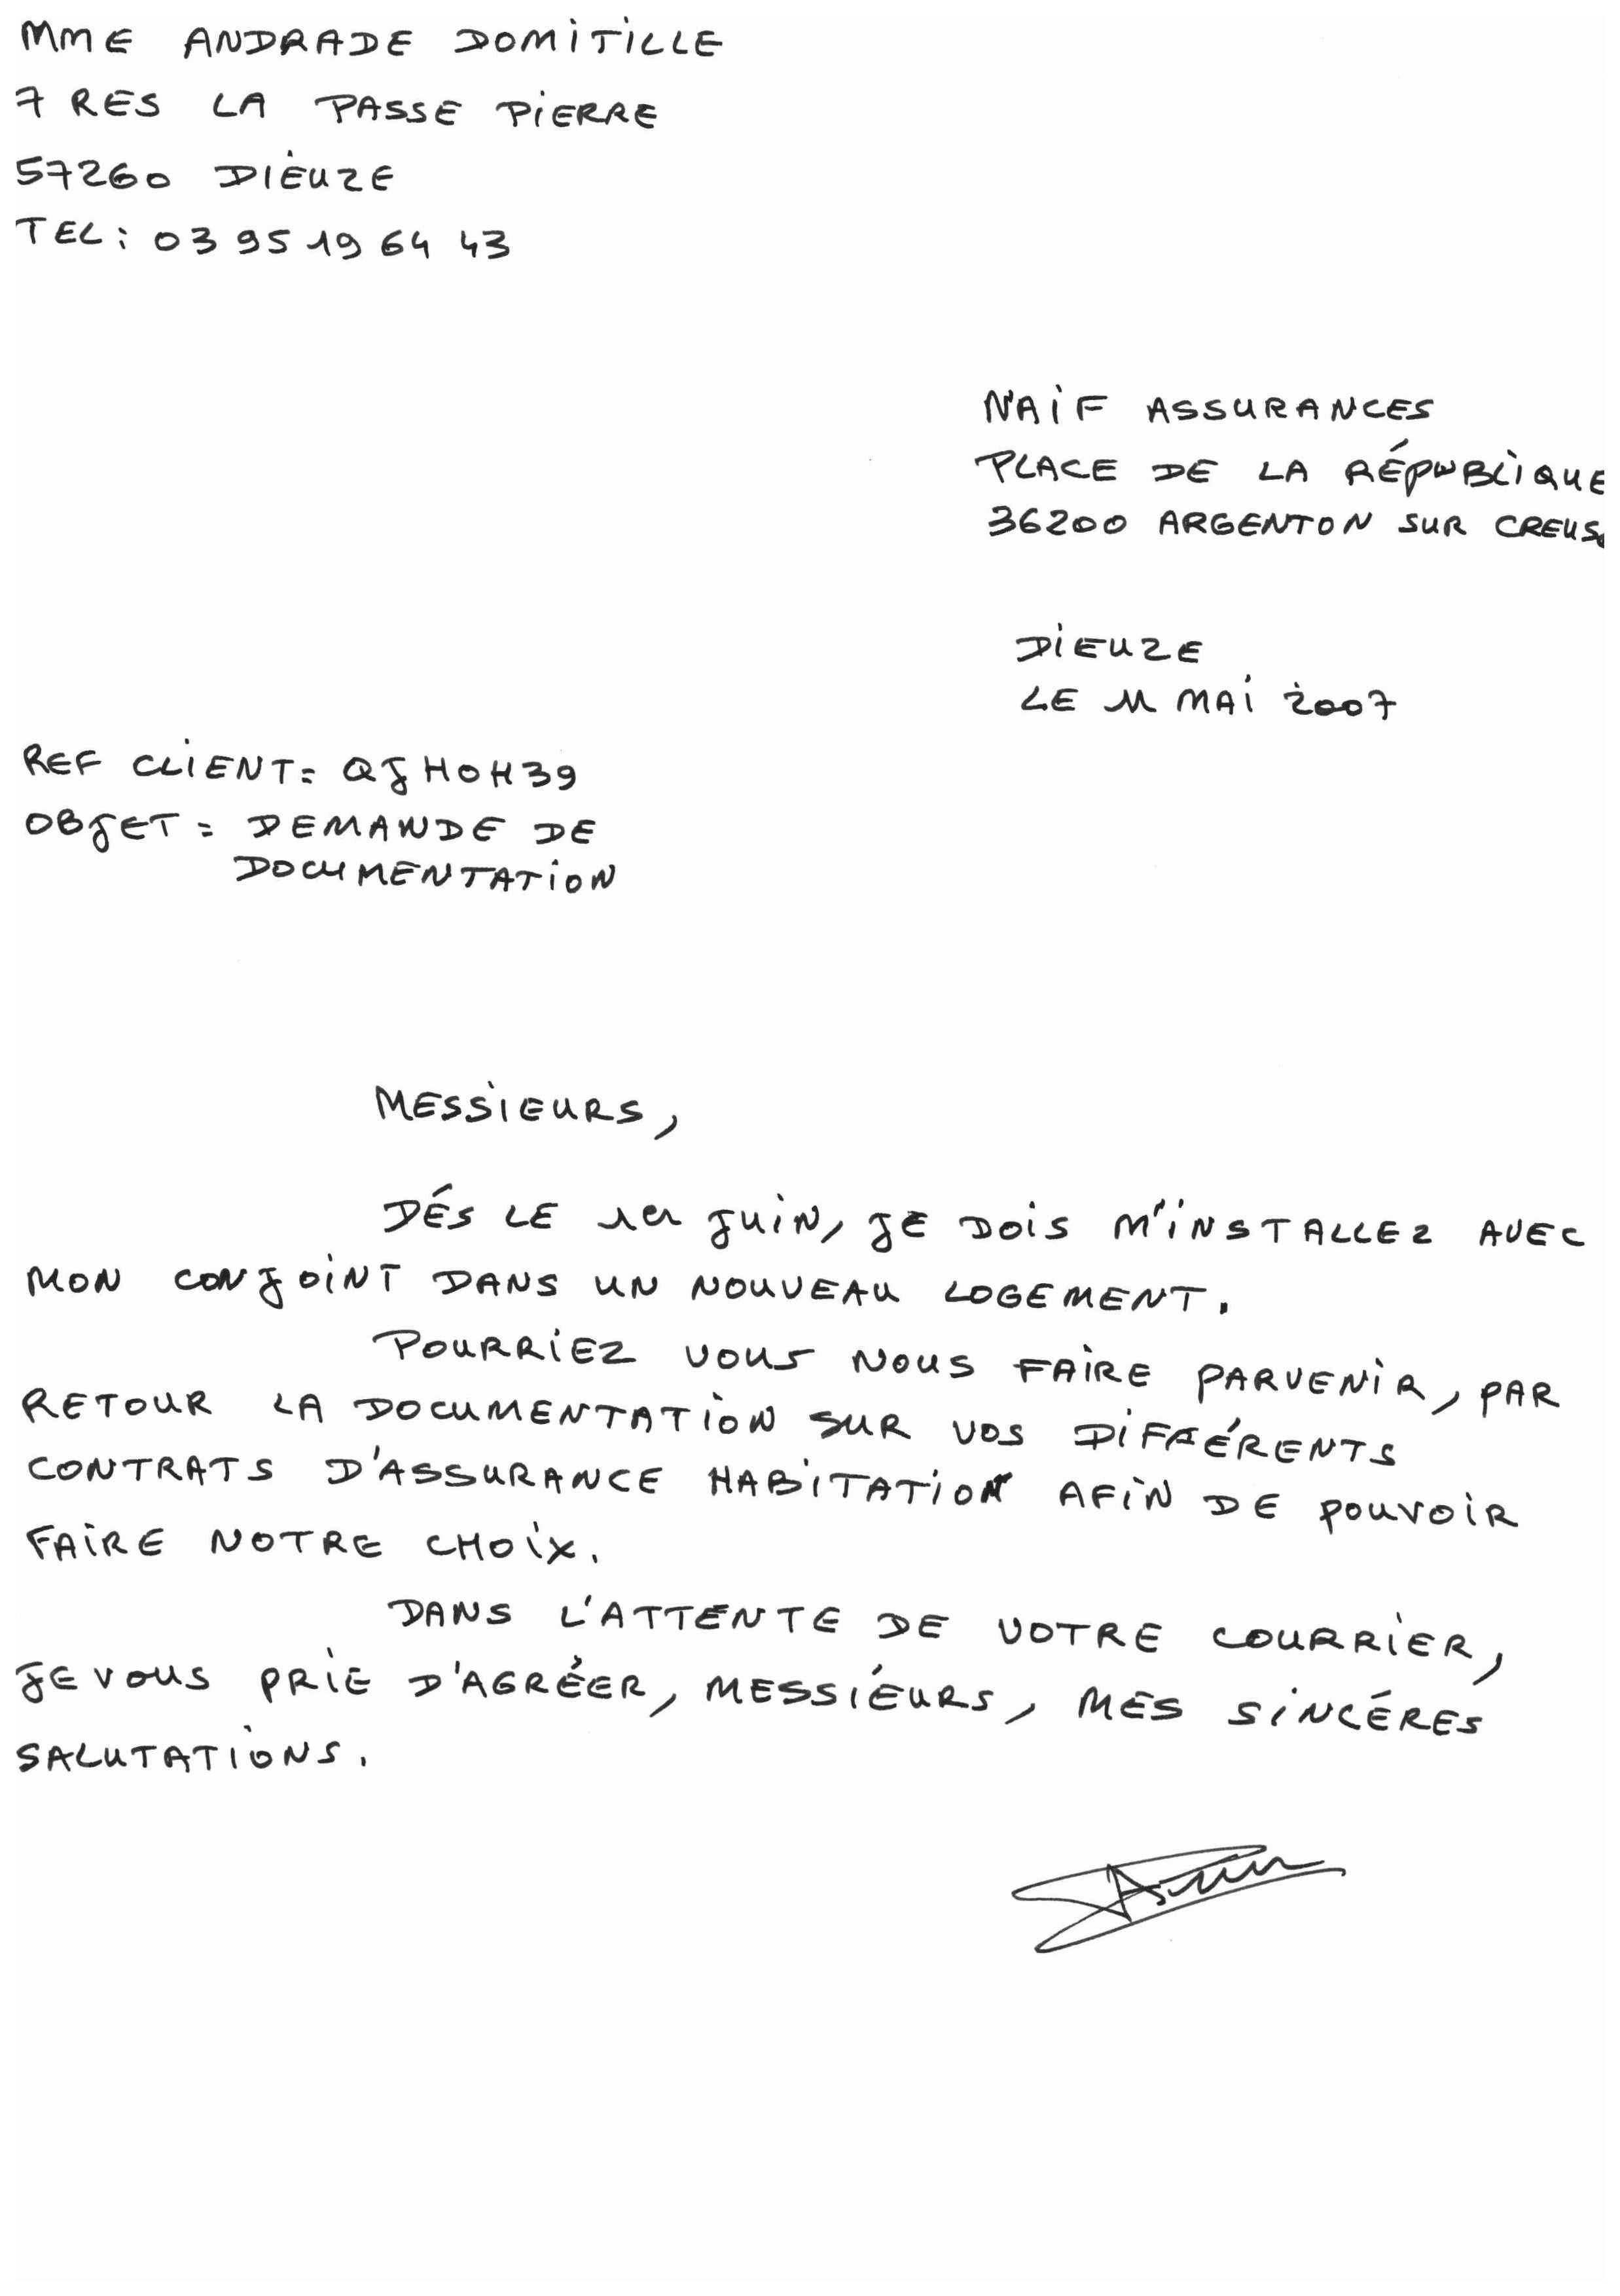 MME ANDRADE DOMITILLE
7 RES LA PASSE PIERRE
57260 DIEUZE
TEL: 03 95 19 64 43
NAIF ASSURANCES
PLACE DE LA RÉPUBLIQUE
36200 ARGENTON SUR CREUSE
DIEUZE
LE 11 MAI 2007
REF CLIENT: QJHOH39
OBJET: DEMANDE DE
DOCUMENTATION
MESSIEURS,
DÉS LE 1er JUIN, JE DOIS M'INSTALLEZ AVEC
MON CONJOINT DANS UN NOUVEAU LOGEMENT.
POURRIEZ VOUS NOUS FAIRE PARVENIR, PAR
RETOUR LA DOCUMENTATION SUR VOS DIFFÉRENTS
CONTRATS D'ASSURANCE HABITATION AFIN DE POUVOIR
FAIRE NOTRE CHOIX.
DANS L'ATTENTE DE VOTRE COURRIER,
JE VOUS PRIE D'AGRÉER, MESSIEURS, MES SINCÉRES
SALUTATIONS.